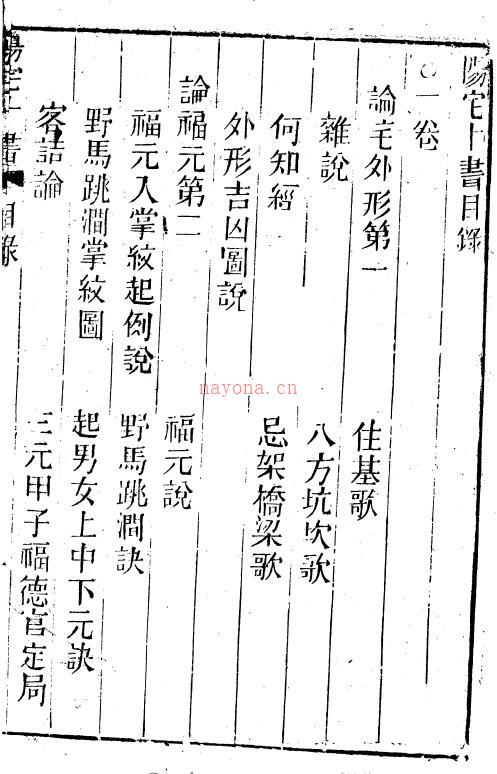 陽宅十書目錄
○一卷
論宅外形第一
雜說 住基歌
何知經 八方坑坎歌
外形吉凶圖說 忌架橋梁歌
論福元第二
福元入掌紋起例說 福元說
野馬跳澗掌紋圖 野馬跳澗訣
客詰論 起男女上中下元訣
三元甲子福德宮定局
陽宅十書 目錄
nayona.cn